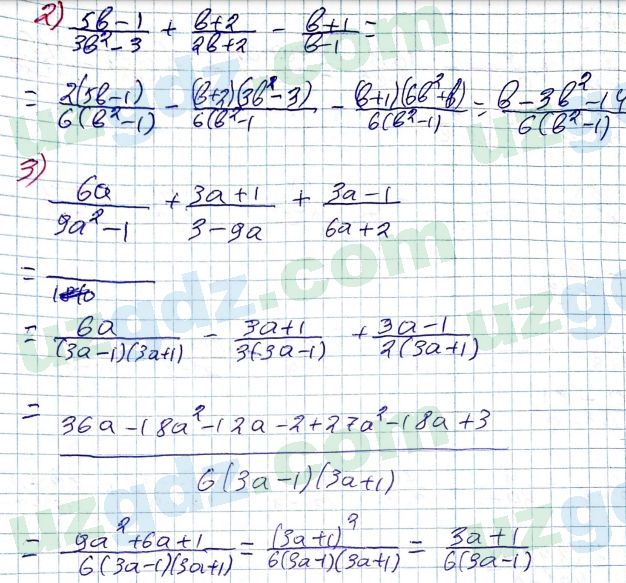 2) (5b-1)/(3b²-3) + (b+2)/(2b+2) - (b+1)/(b-1) =
= 2(5b-1)/6(b²-1) - (b+2)(3b²-3)/6(b²-1 - (b+1)(6b²+b)/6(b²-1) = b-3b²-14/6(b²-1)
3)
6a/(9a²-1) + (3a+1)/(3-9a) + (3a-1)/(6a+2)
=
= 6a/(3a-1)(3a+1) - (3a+1)/3(3a-1) + (3a-1)/2(3a+1)
= 36a-18a²-12a-2+27a²-18a+3/6(3a-1)(3a+1)
= 9a²+6a+1/6(3a-1)(3a+1) = (3a+1)²/6(3a-1)(3a+1) = 3a+1/6(3a-1)
uzgdz.com